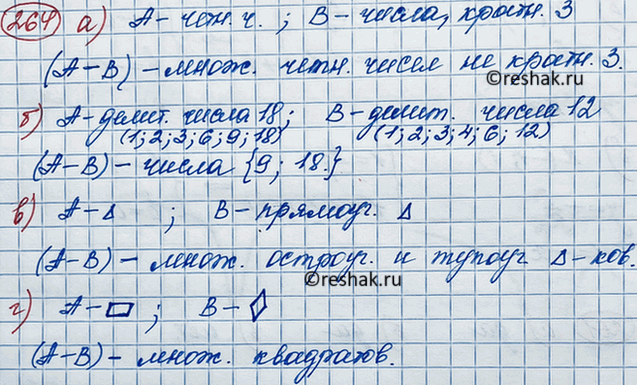 264 а) А - четн. ч. ; В - числа, кратн. 3
(А-В) - множ. четн. чисел не кратн. 3.
©reshak.ru
б) А-делит. числа 18; В-делит. числа 12
(1; 2; 3; 6; 9; 18) (1; 2; 3; 4; 6; 12)
(А-В) - числа {9; 18.}
в) А-Δ ; В-прямоуг. Δ
(А-В) - множ. остроуг. и тупоуг Δ-ков.
©reshak.ru
г) А-▭ ; В-◊
(А-В) - множ. квадратов.